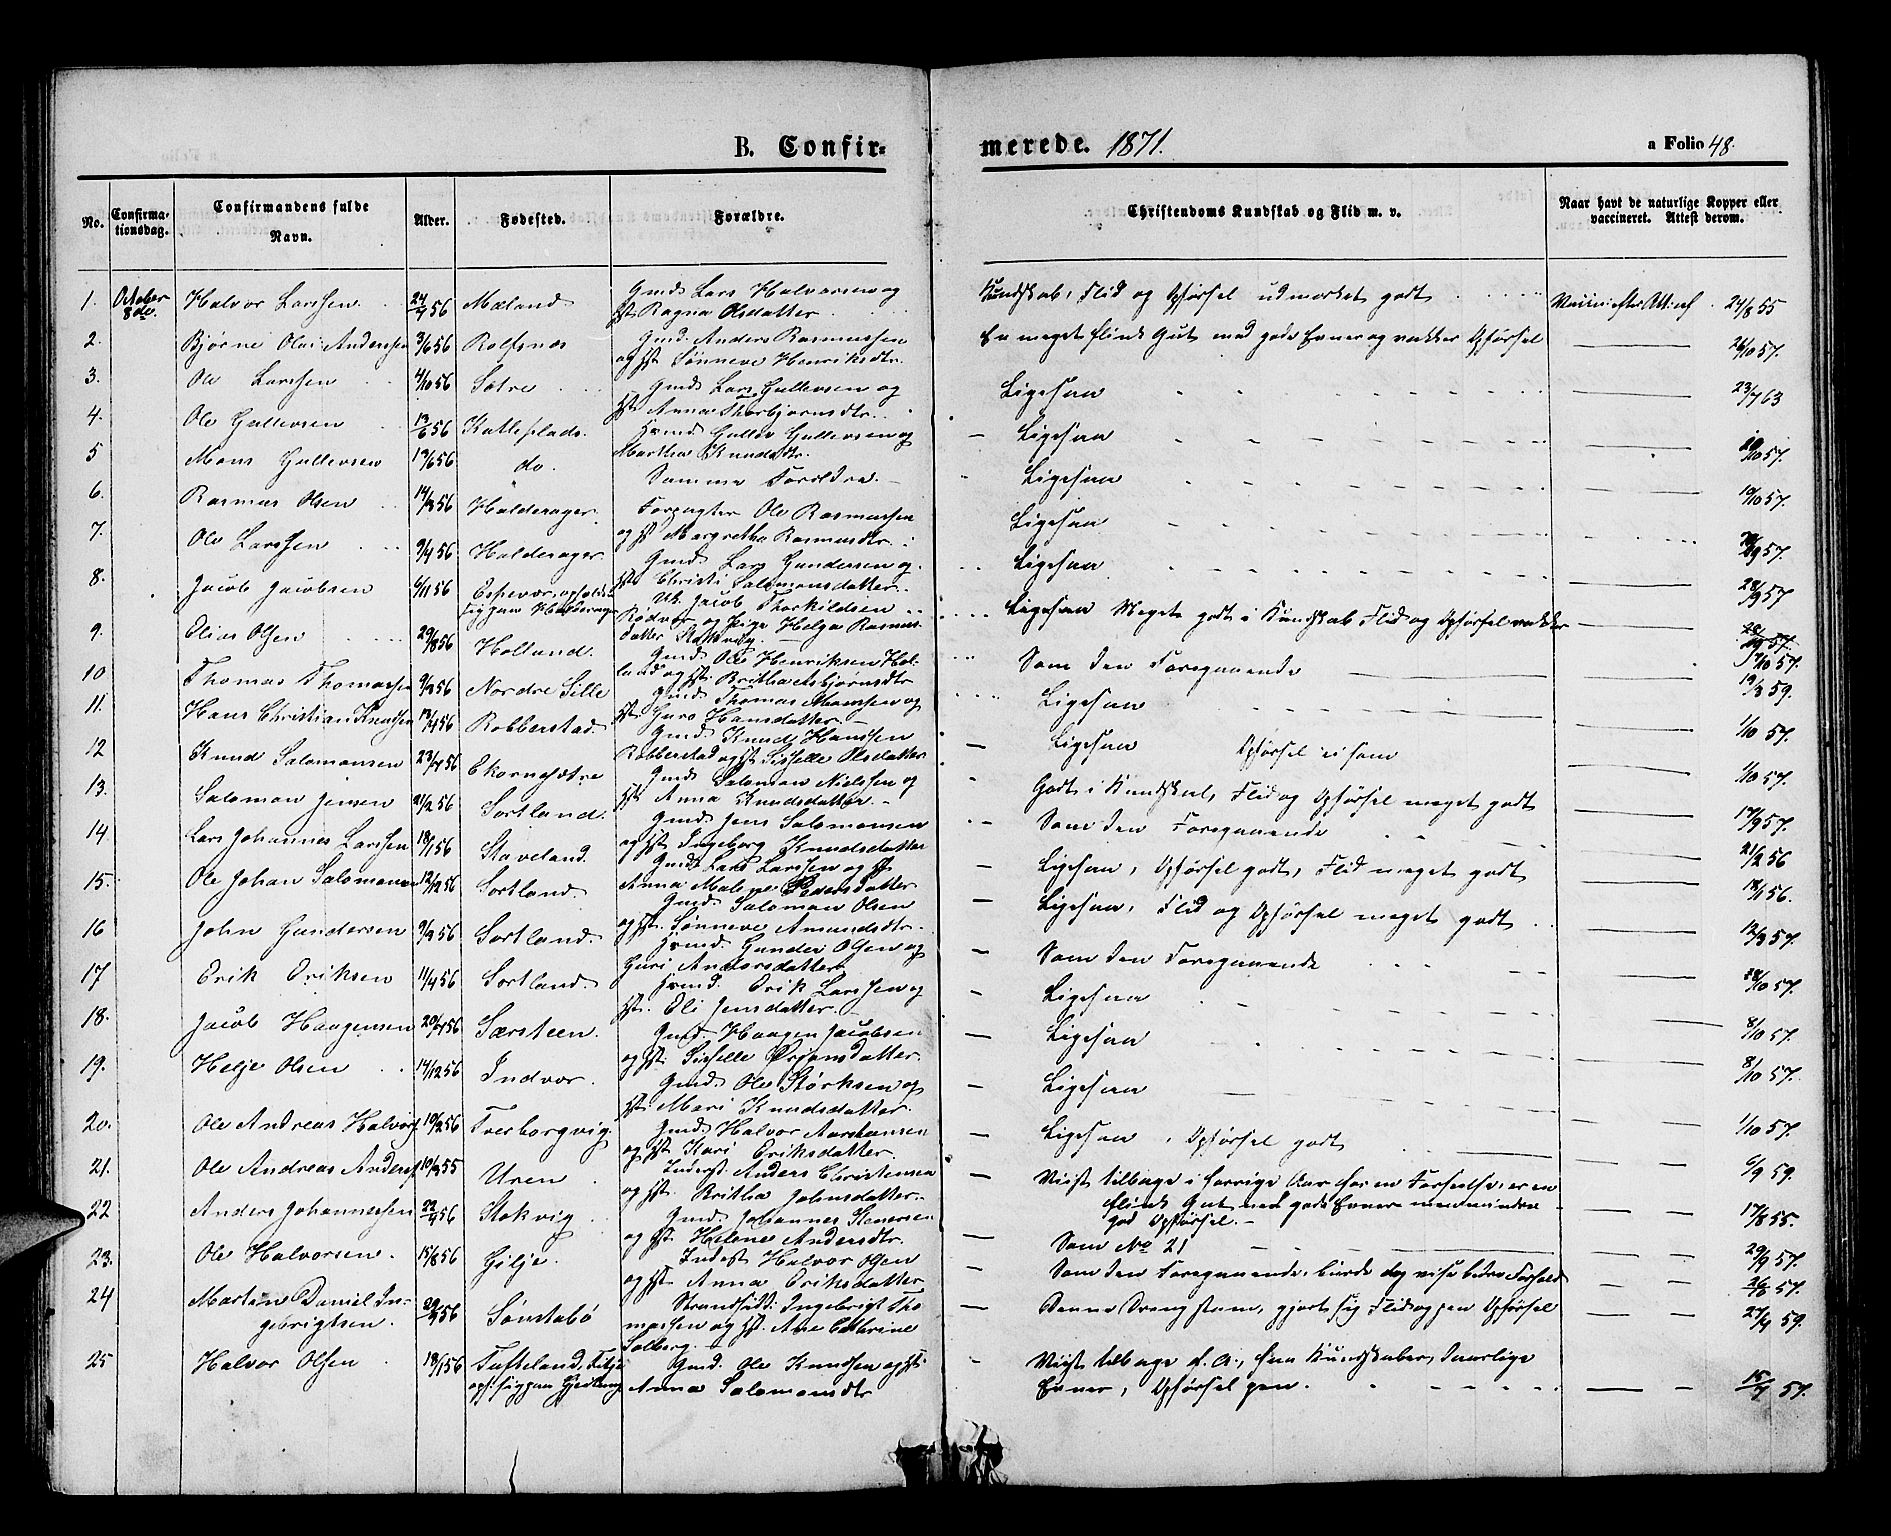 B. Confir-merede. 1871.
a Folio 48.
No. Confirma-tionsdag. Confirmandens fulde Navn. Alder. Fødested. Forældre. Christendoms Kundskab og Flid m. v. Naar havt de naturlige Kopper eller vaccineret. Attest derom.
1. October 8de Halvor Larssen 24/4 56 Mæland Gmd. Lars Halvorsen og Hst. Ragna Olsdatter Kundskab, Flid og Opførsel udmærket godt 24/8 55
2. Bjørne Olai Anderssen 3/6 56 Rolfsnes Gmd. Anders Rasmussen og Hst. Sønneve Henriksdtr. En meget flink Gut med gode Evner og vakker Opførsel 26/10 57.
3. Ole Larssen 4/10 56 Sætre Gmd. Lars Gullevsen og Hst. Anna Thorbjørnsdtr. Ligesaa 23/7 63
4. Ole Gullevsen 13/6 56 Katleplads. Hmd. Gullev Gullevsen og Martha Knudsdtr. Ligesaa 10/10 57.
5 Mons Gullevsen 13/6 56 do. Samme Forældre. Ligesaa 10/10 57.
6. Rasmus Olsen 14/3 56 Halderager. Forpagter Ole Rasmussen og Hst. Margretha Rasmusdtr. Ligesaa
7. Ole Larssen 9/4 56 Halderager. Gmd. Lars Gundersen og Hst. Christi Salomonsdatter. Ligesaa 28/9 57
8. Jacob Jacobsen 6/11 56 Espevær, opholdt sig paa Halderager Uk. Jacob Thorkildsen Rødvær og Pige Helga Rasmusdatter Ligesaa Meget godt i Kundskab Flid og Opførsel vakker
9. Elias Olsen 29/8 56 Holland. Gmd. Ole Henriksen Holland og Hst. Britha Asbjørnsdtr Som den Foregaaende 17/10 57.
10 Thomas Thomassen 9/3 56 Nordre Lille Gmd. Thomas Monssen og Hst. Guro Hansdatter. Ligesaa 19/3 59.
11. Hans Christian Knudsen 13/4 56 Robberstad. Gmd. Knud Hanssen Robberstad og Hst. Sisselle Olsdatter Ligesaa Opførsel ei som 1/10 57.
12 Knud Salomonsen 23/4 56 Ekornesætre Gmd. Salomon Nielssen og Hst. Anna Knudsdatter. Godt i Kundskab, Flid og Opførsel meget godt 1/10 57.
13. Salomon Jensen 21/2 56 Sortland. Gmd. Jens Salomonsen og Hst. Ingeborg Knudsdatter Som den Foregaaende 17/9 57.
14. Lars Johannes Larssen 18/1 56 Staveland. Gmd. Lars Larssen og Hst Anna Malene Pedersdatter Ligesaa, Opførsel godt, Flid meget godt 21/2 56
15. Ole Johan Salomonsen 12/12 56 Sortland. Gmd. Salomon Olsen og Hst. Sønneve Amundsdtr. Ligesaa, Flid og Opførsel meget godt 18/1 56.
16 John Gundersen 9/3 56 Sortland. Hmd. Gunder Olsen og Guri Andersdatter Som den Foregaaende 12/3 57.
17 Erik Eriksen 11/4 56 Sortland. Hmd. Erik Larssen og Hst. Eli Jensdatter. Ligesaa 18/10 57.
18. Jacob Haagensen 20/4 56 Særsteen. Gmd. Haagen Jacobsen og Hst. Sisselle Ørjansdatter. Ligesaa 8/10 57.
19. Helje Olsen 14/12 56 Indvær. Gmd. Ole Størksen og Hst. Mari Knudsdatter. Ligesaa 8/10 57.
20. Ole Andreas Halvors. 10/2 56 Tverborgvig. Gmd. Halvor Aastensen og Hst. Kari Eriksdatter. Ligesaa, Opførsel godt 1/10 57.
21. Ole Andreas Anders. 10/3 55 Uren. Inderst. Anders Christensen og Hst. Britha Johnsdatter. Viist tilbage i forrige Aar for en Forseelse, er en flink Gut med gode Evner men mindre god Opførsel. 6/9 59.
22 Anders Johannessen 22/4 56 Stokvig Gmd. Johannes Stenersen og Hst. Helene Andersdtr. Som No 21 17/8 55.
23. Ole Halvorsen. 15/8 56 Gilje. Inderst Halvor Olsen og Hst. Anna Eriksdatter Som den Foregaaende, burde dog vise bedre Forhold 29/9 57.
24 Morten Daniel Ingebrigtsen. 22/4 56 Sønstabø Strandsidd. Ingebrigt Thomassen og Hst. Ane Cathrine Solberg. Denne Dreng, gjort sig Flid og pen Opførsel 27/9 59.
25 Halvor Olsen 18/1 56 Tufteland, Fitje Gmd. Ole Knudsen og Hst. Anna Salomonsdtr Viist tilbage f. A., smaa Kundskaber, daarlige Evner, Opførsel pen. 15/7 57.